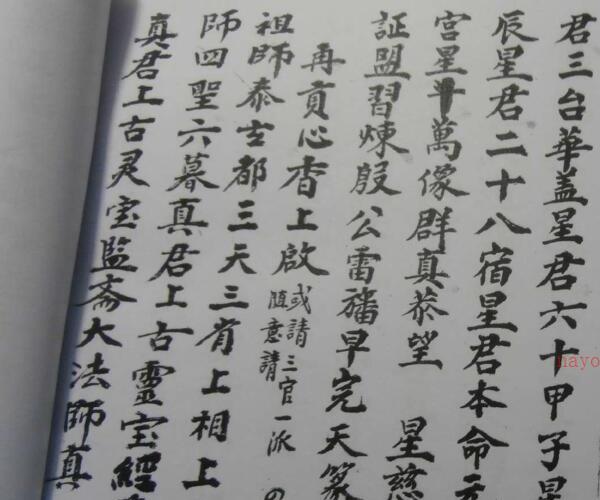 君三台華盖星君六十甲子星
辰星君二十八宿星君本命元
宮星斗萬像群真恭望 星慈
証盟習煉殷公雷旛早完天篆
再貢心香上啟或請三官一派隨意請
祖師泰玄都三天三省上相上
師四聖六暮真君上古靈宝經
真君上古灵宝監斋大法師真
nayo